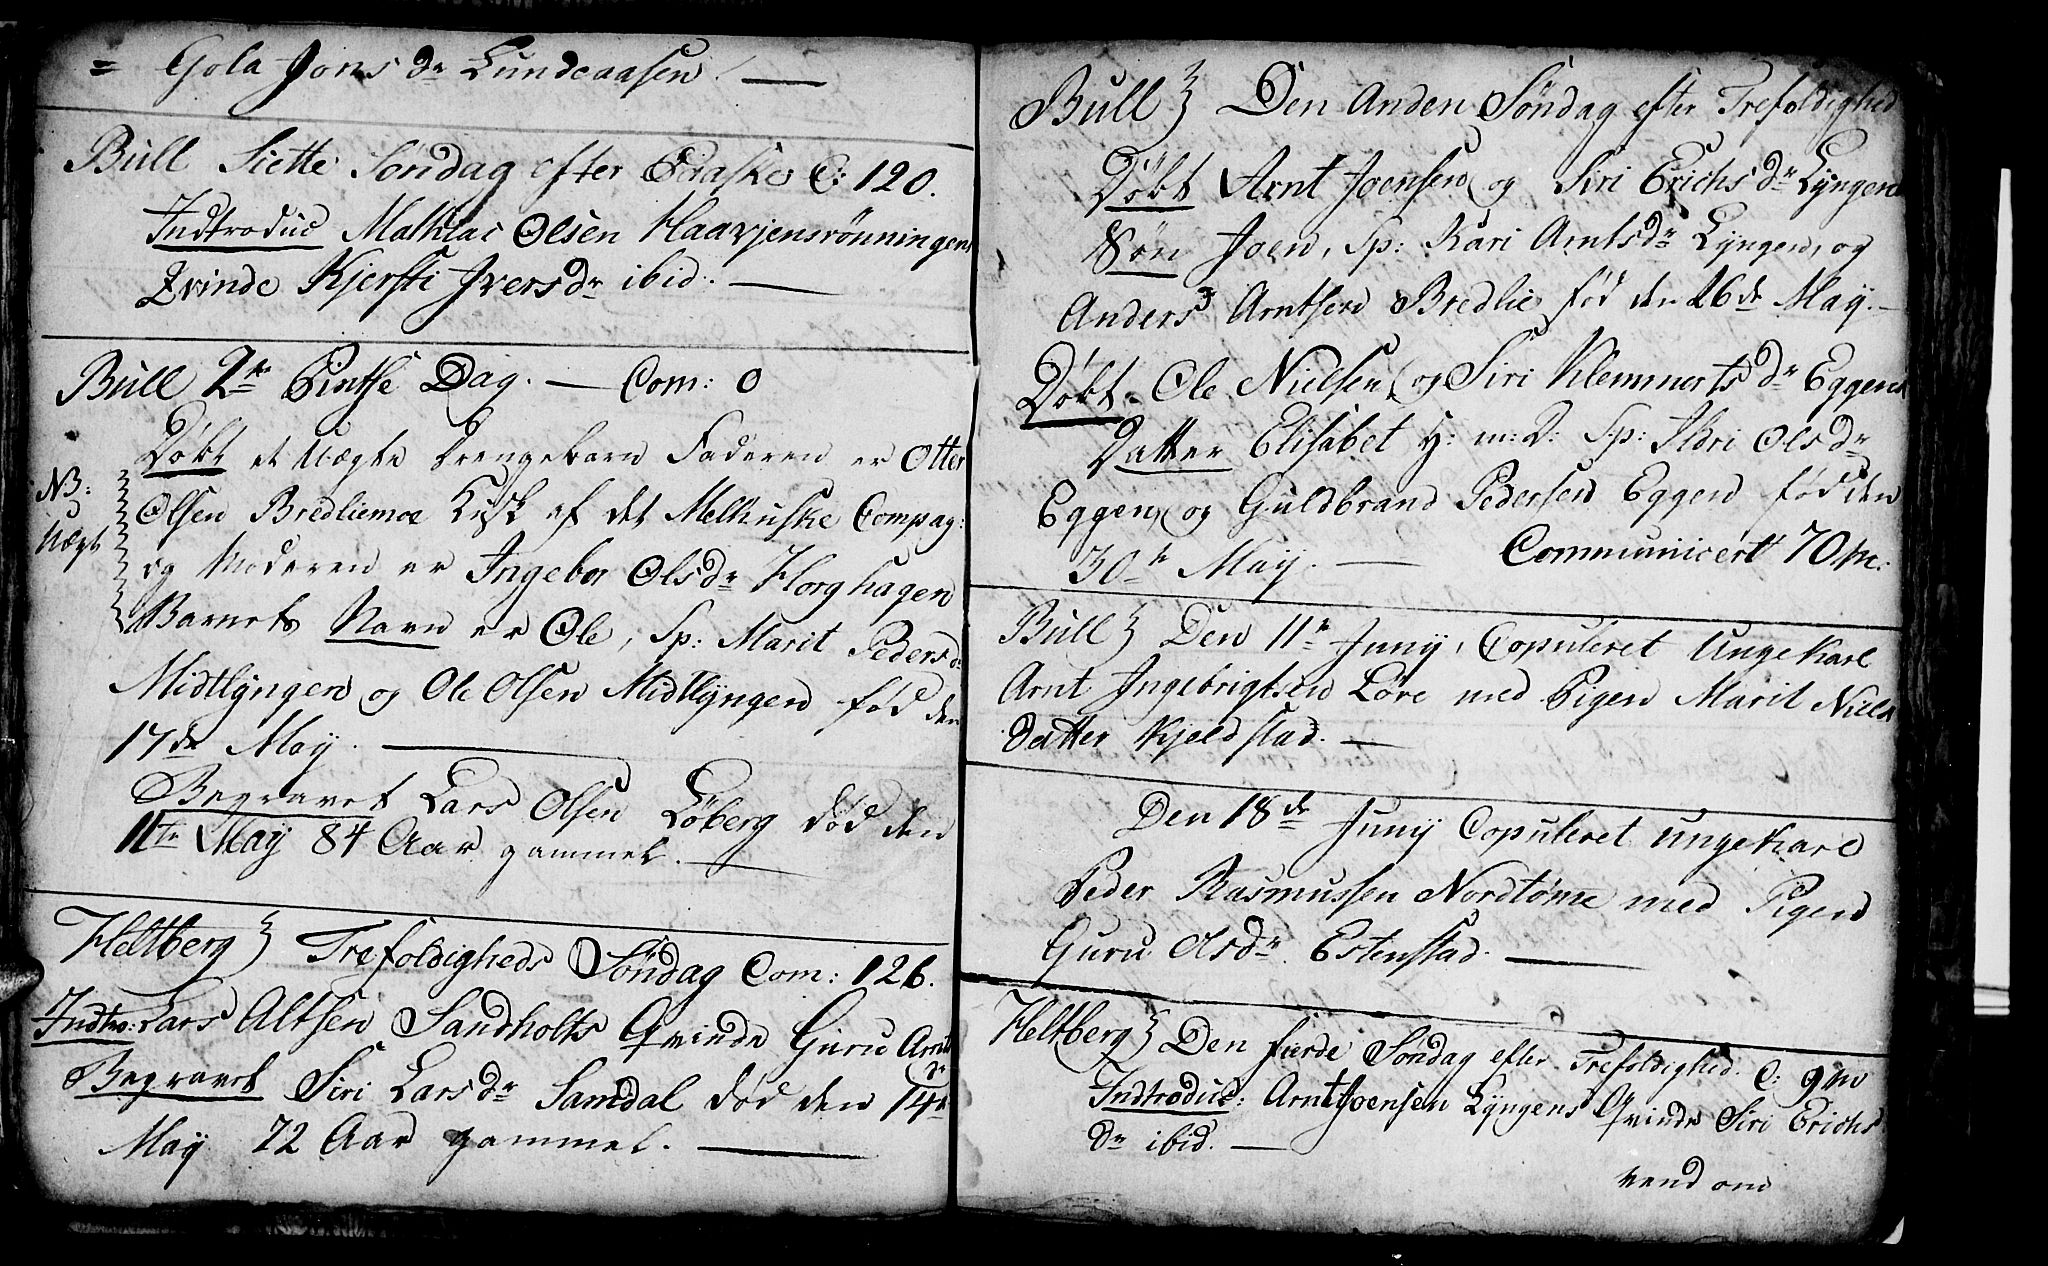 = Gola Jons dr Lundeaasen. —
Bull Siette Søndag efter Paaske C: 120.
Indtroduc Mathias Olsen Haavjensrønningens
Qvinde Kjersti Ivers dr ibid. —
Bull 2den Pintse Dag. — Com: 0
Døbt et Uægte Drengebarn Faderen er Otter
NB:
Uægt
Olsen Bredliemoe af det Melhuske Compag:
og Moderen er Ingebor Olsdr Horghagen
Barnets Navn er Ole, Sp: Marit Pedersdr
Midtlyngen og Ole Olsen Midtlyngen fød den
17de May. —
Begravet Lars Olsen Løberg død den
11te May 84 Aar gammel. —
Heltberg } Trefoldigheds Søndag Com: 126.
Indtro: Lars Altsen Sandholts Qvinde Guru Arnts
dr
Begravet Siri Larsdr Samdal død den 14de
May 72 Aar gammel. —
Bull } Den Anden Søndag efter Trefoldighed
Døbt Arnt Joensen og Siri Erichs dr Lyngens
Søn Joen, Sp: Kari Arntsdr Lyngen, og
Anders Arntsen Bredlie fød den 26de May. —
Døbt Ole Nielsen og Siri Klemmerts dr Eggens
Datter Elisabet H: m: D: Sp: Ildri Olsdr
Eggen, og Guldbrand Pedersen Eggen fød den
30te May. — Communicert 70 m.
Bull } Den 11te Junij, Copuleret Ungekarl
Arnt Ingebrigtsen Løre med Pigen Marit Niels
Datter Kjeldstad. —
Den 18de Junij Copuleret Ungekarl
Peder Rasmussen Nordtømme med Pigen
Guru Olsdr Estenstad. —
Heltberg } Den fierde Søndag efter Trefoldighed. C: 9 m
Indtroduc: Arnt Joensen Lyngens Qvinde Siri Erichs
dr ibid. —
vend om